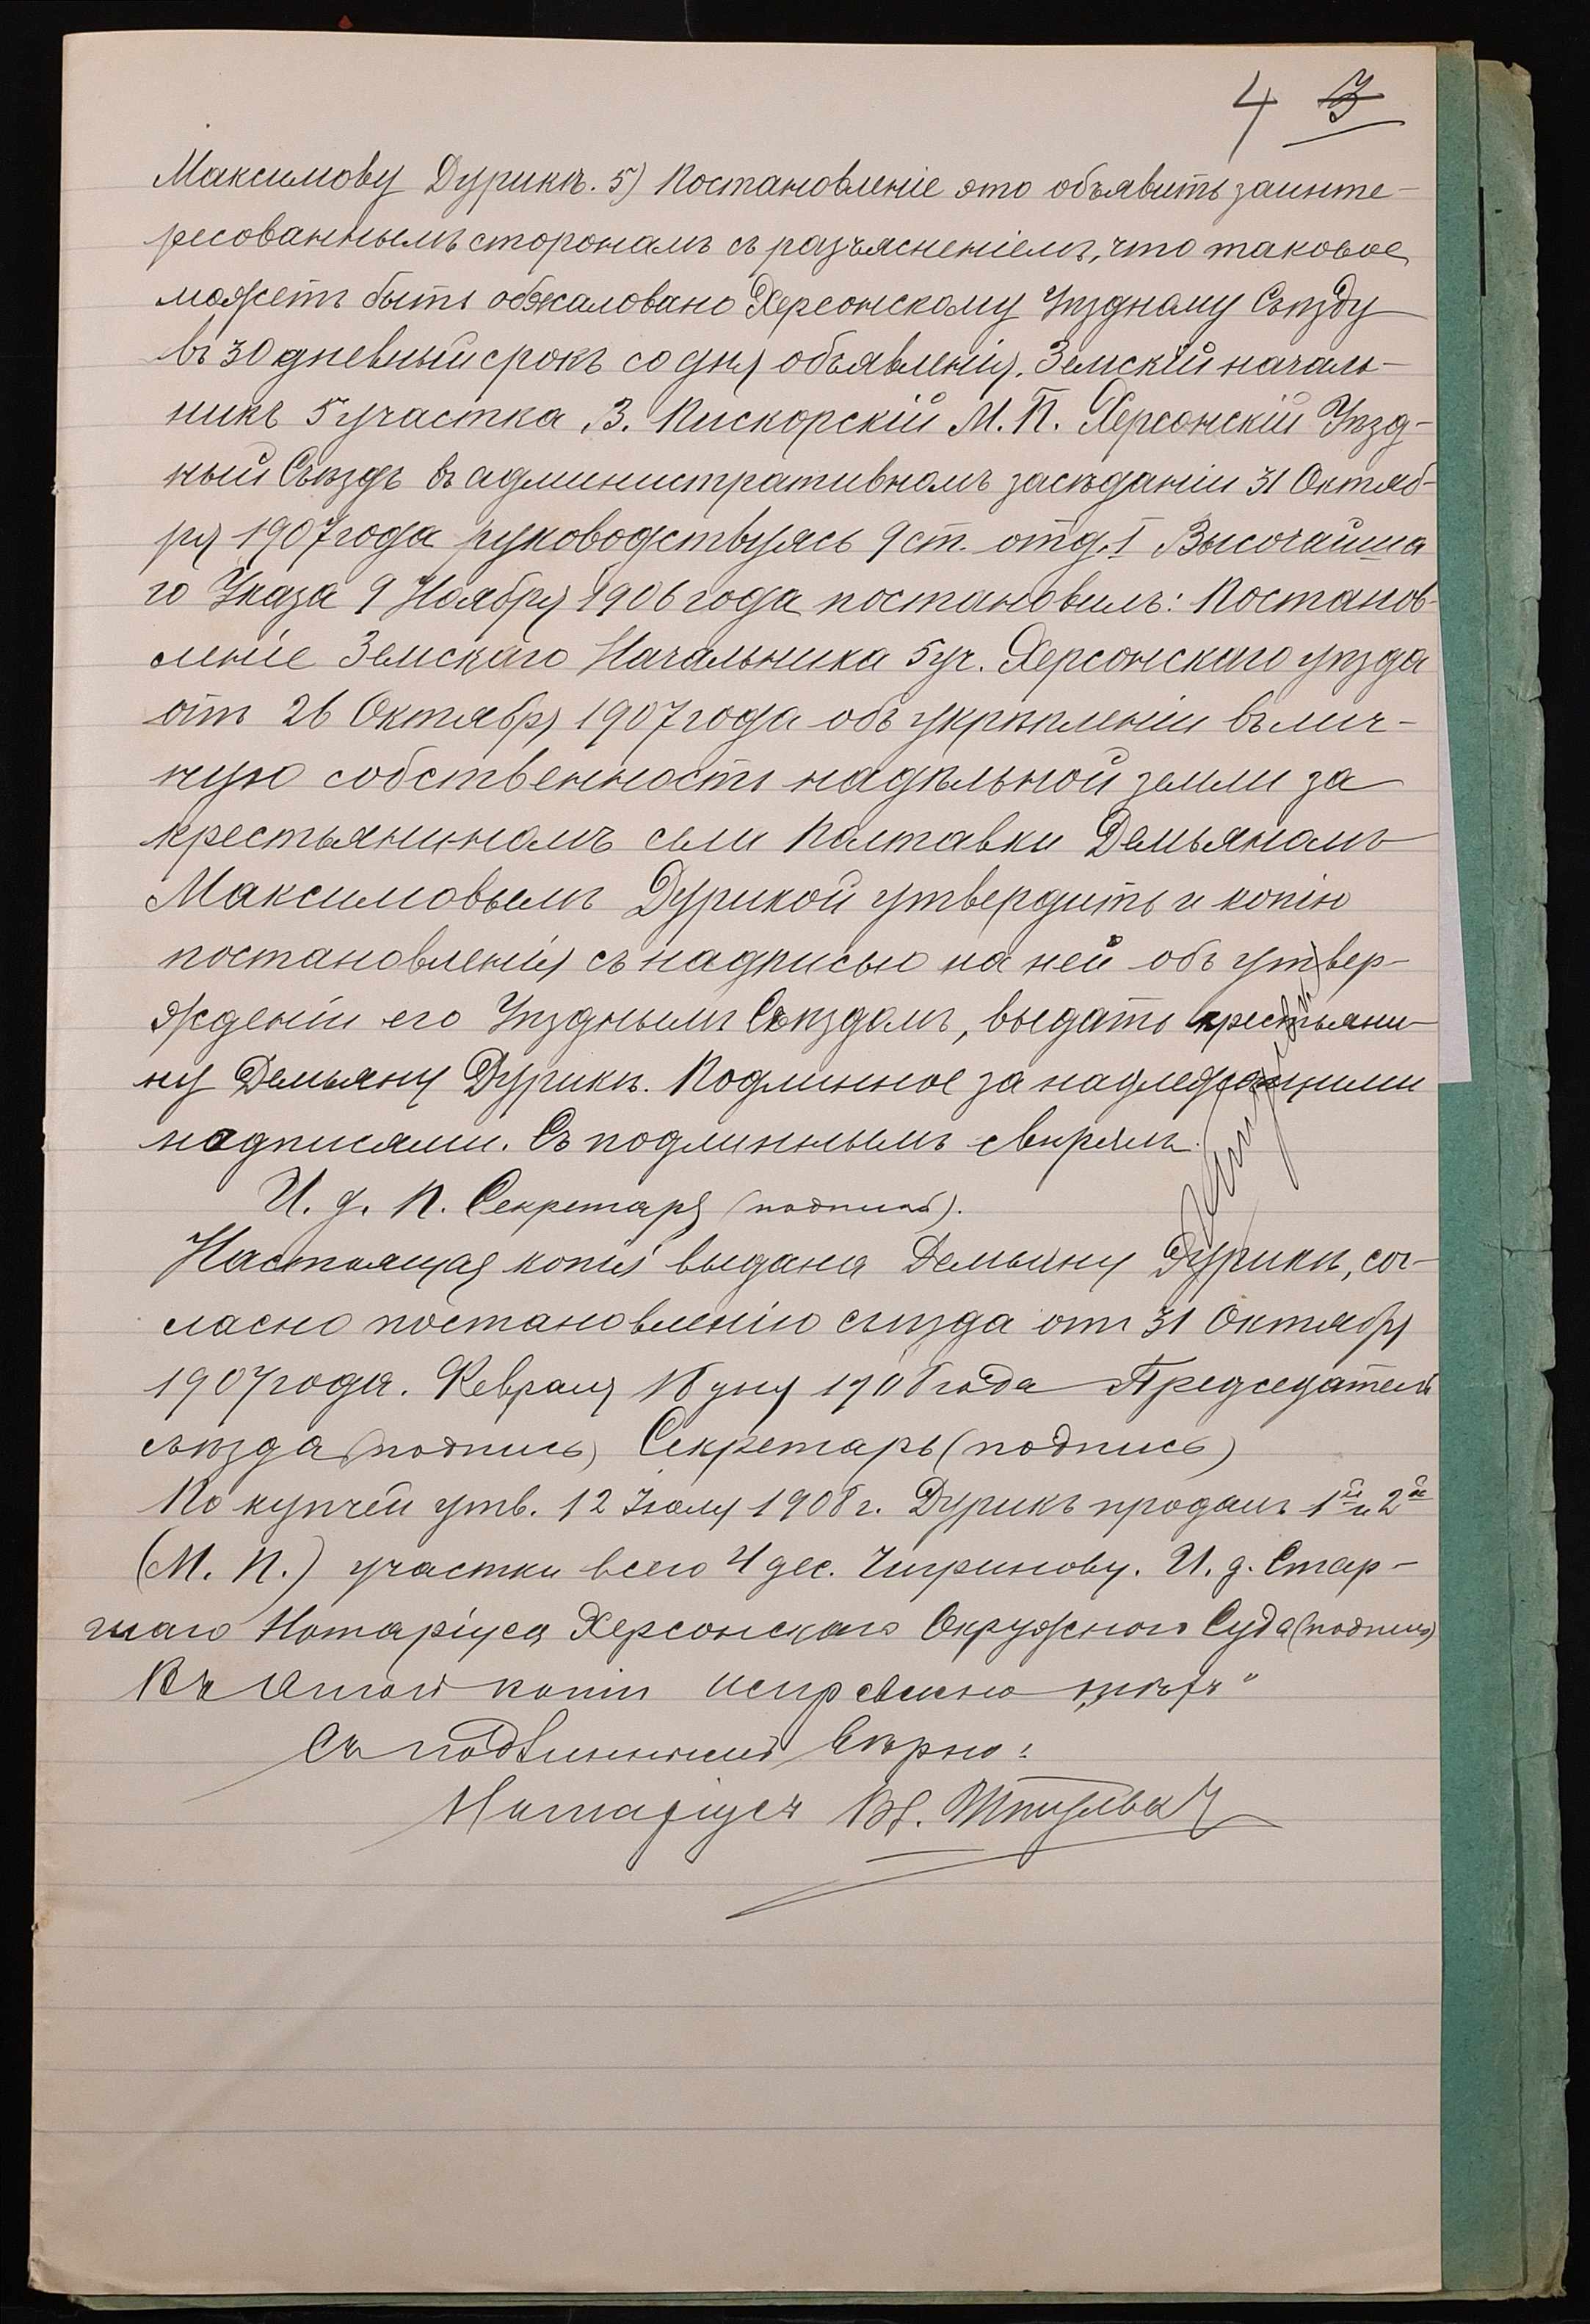 4 3
Максимову Дурикѣ. 5) Постановленіе это объявить заинте-
ресованнымъ сторонамъ съ разъясненіемъ, что таковое
можетъ быть обжаловано Херсонскому Уѣздному Съѣзду
въ 30 дневный срокъ со дня объявленія. Земскій началь-
никъ 5 участка, З. Пискорскій М. П. Херсонскій Уѣзд-
ный Съѣздъ въ административномъ засѣданіи 31 Октяб-
ря 1907 года руководствуясь 9 ст. отд. I Высочайша
го Указа 9 Ноября 1906 года постановилъ: Постанов-
леніе Земскаго Начальника 5 уч. Херсонскаго уѣзда
отъ 26 Октября 1907 года объ укрѣпленіи въ лич-
ную собственность надѣльной земли за
крестьяниномъ села Полтавки Демьяномъ
Максимовымъ Дурикой утвердить и копію
постановленія съ надписью на ней объ утвер-
жденіи его Уѣзднымъ Съѣздомъ, выдать крестьяни-
ну Демьяну Дурикѣ. Подлинное за надлежащими
надписями. Съ подлиннымъ свѣрялъ.
И. д. П. Секретаря (подпись).
Настоящая копія выдана Демьяну Дурикѣ, сог-
ласно постановленію съѣзда отъ 31 Октября
1907 года. Февраля 18 дня 1908 года Председатель
съѣзда (подпись) Секретарь (подпись)
По купчей утв. 12 Іюля 1908 г. Дурикъ продалъ 1й и 2й
(М. П.) участки всего 4 дес. Чигринову. И. д. Стар-
шаго Нотаріуса Херсонскаго Окружного Суда (подпись)
Въ этой копіи исправлено
Съ подлиннымъ вѣрно:
Нотаріусъ